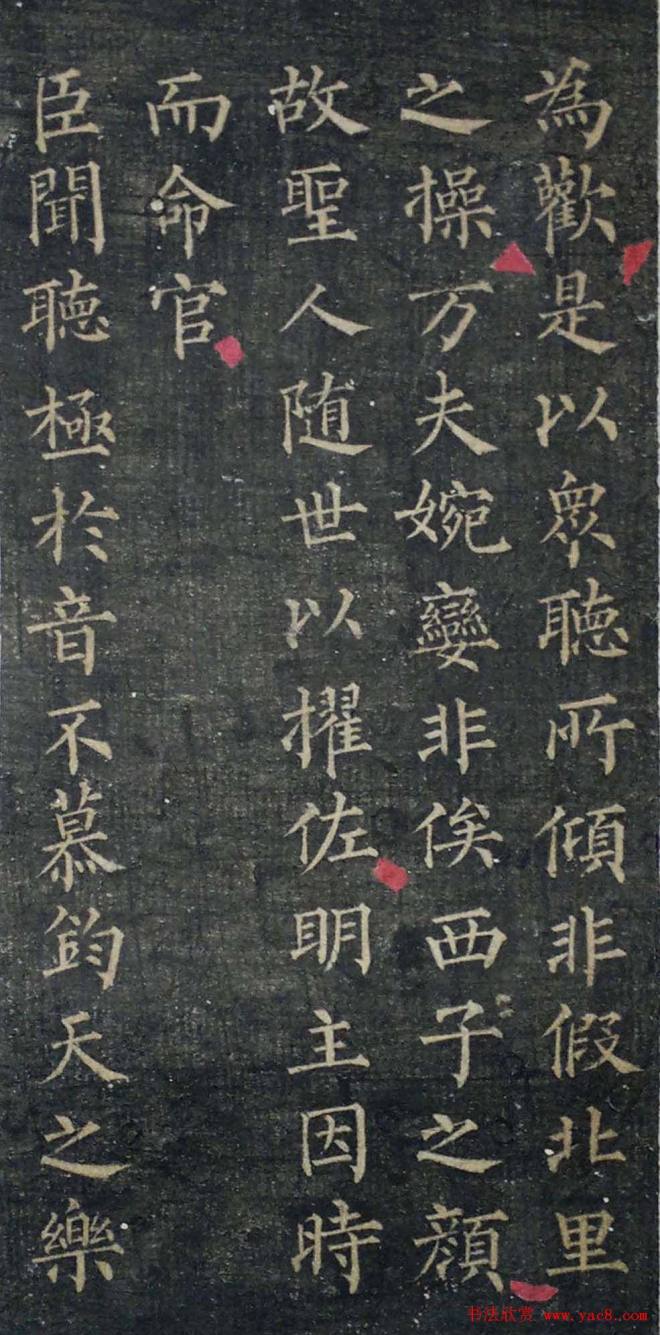 為歡是以眾聽所傾非假北里
之操万夫婉孌非俟西子之顔
故聖人随世以擢佐明主因時
而命官
臣聞聴極於音不慕鈞天之樂
书法欣赏 www.yac8.com